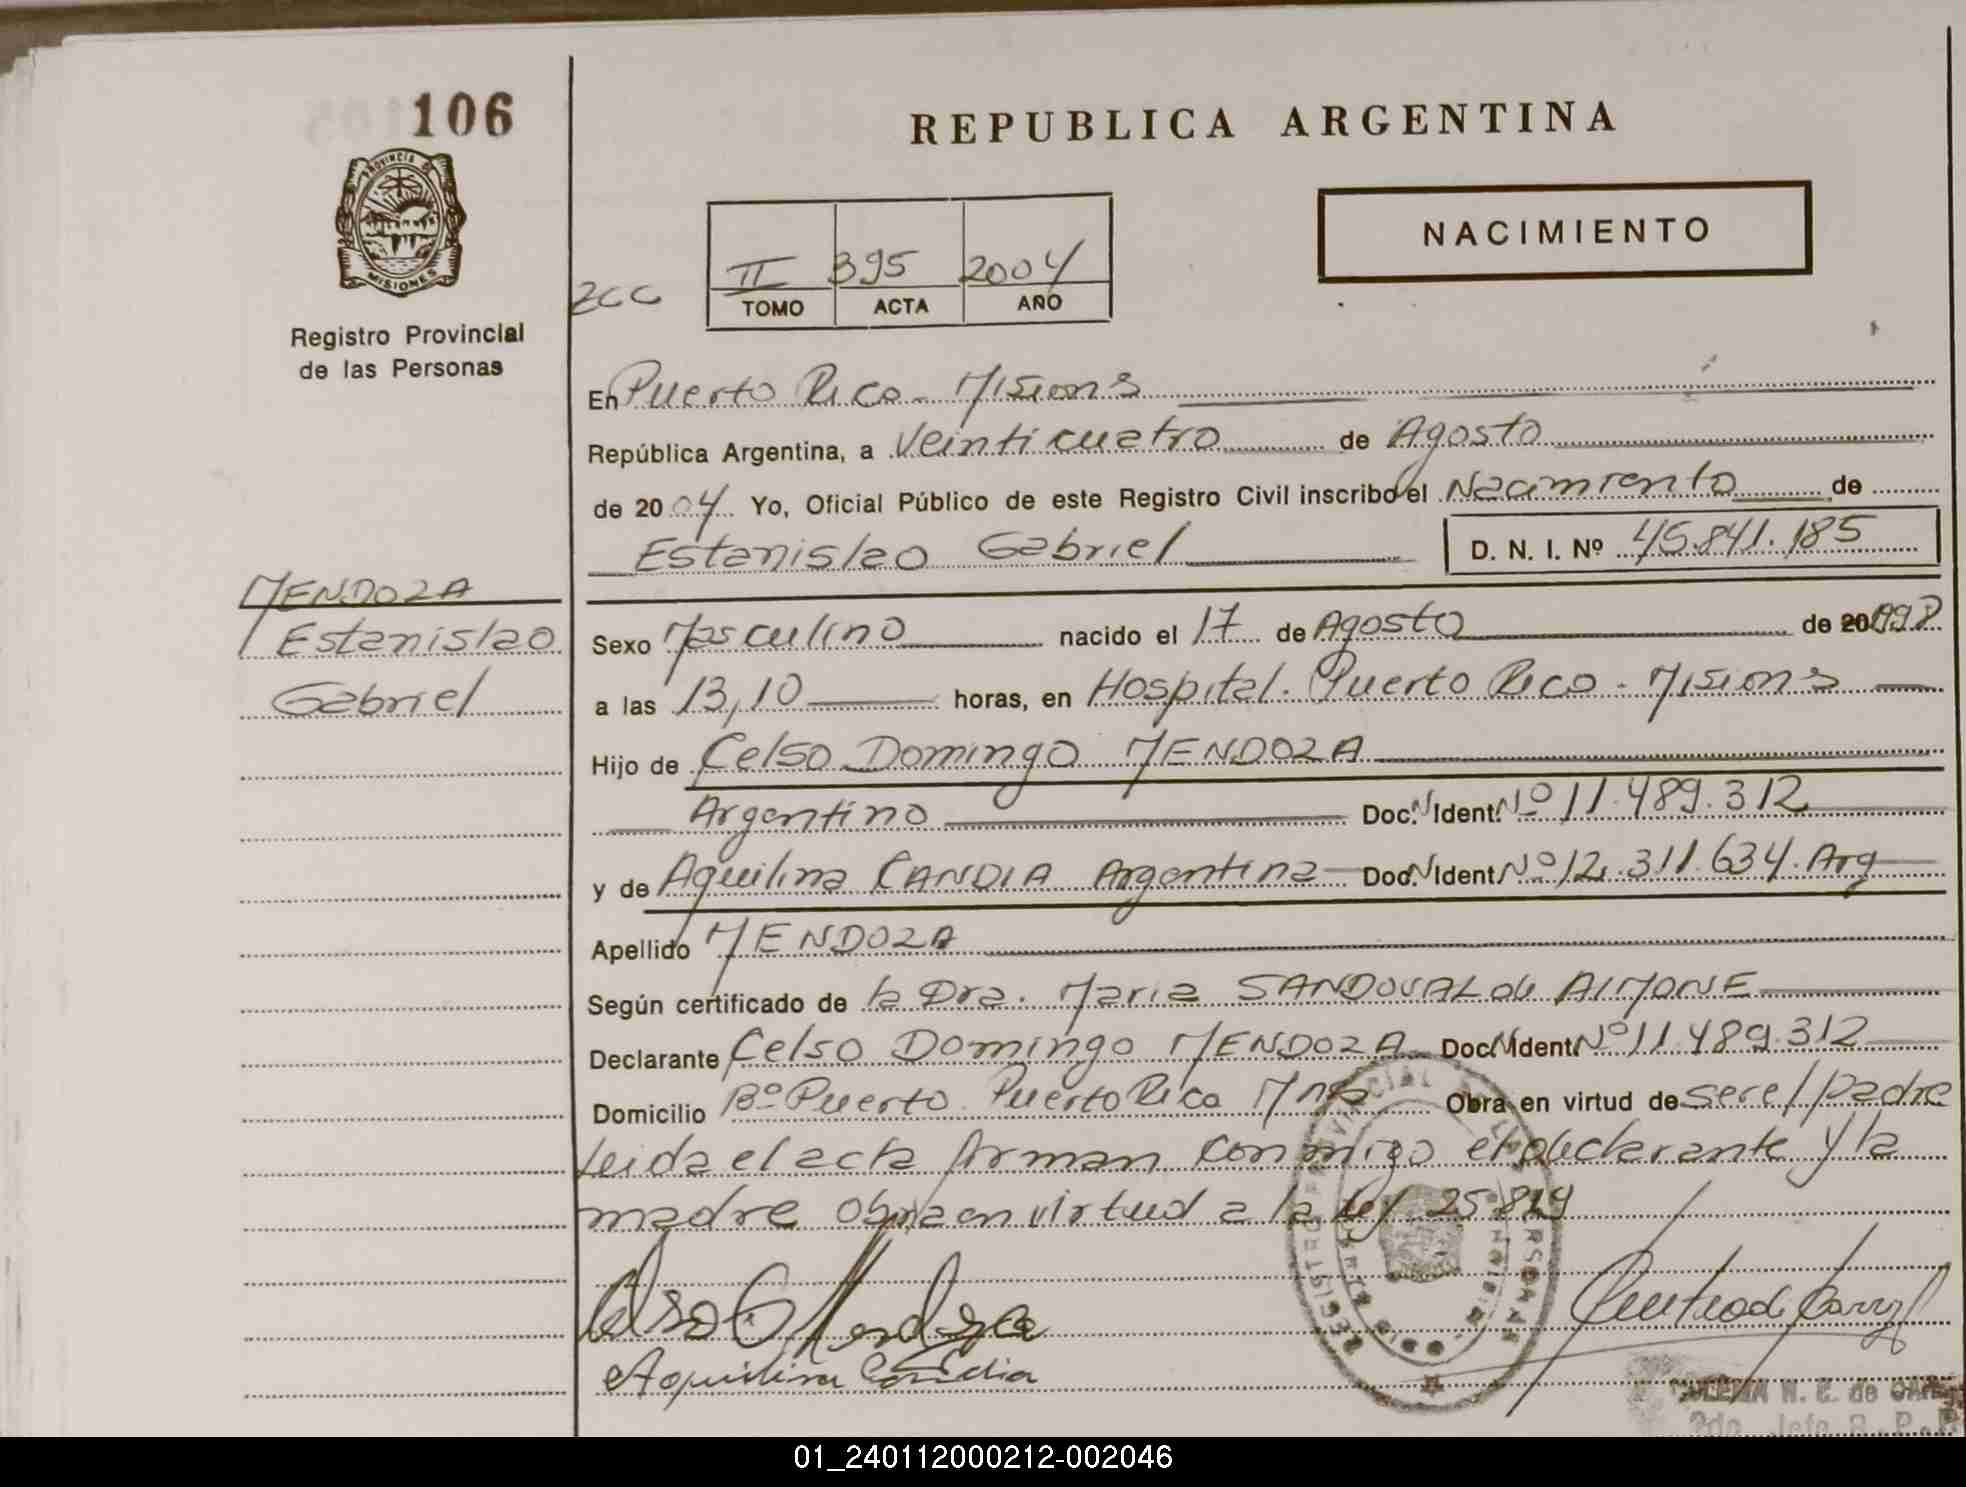 106
REPUBLICA ARGENTINA
PROVINCIA D
MISIONES
Registro Provincial
de las Personas
NACIMIENTO
II 395 2004
TOMO ACTA AÑO
En Puerto Rico - Misions
República Argentina, a Veinticuatro de Agosto
de 2004 Yo, Oficial Público de este Registro Civil inscribo el Nacimiento de
Estanislao Gabriel D. N. I. Nº 45.841.185
MENDOZA
Estanislao
Gabriel
Sexo Masculino nacido el 17 de Agosto de 20 1998
a las 13,10 horas, en Hospital. Puerto Rico - Misions
Hijo de Celso Domingo MENDOZA
Argentino Doc. N Ident. Nº 11.489.312
y de Aquilina CANDIA Argentina Doc. N Ident. Nº 12.311.634. Arg
Apellido MENDOZA
Según certificado de la Dra. Maria SANDOVAL de AIMONE
Declarante Celso Domingo MENDOZA Doc. N Ident. Nº 11.489.312
Domicilio Bº Puerto. Puerto Rico Mns Obra en virtud de ser el padre
Leida el acta firman conmigo el declarante y la
madre Obra en virtud a la ley 25.819
Celso D Mendoza
Aquilina Candia
N. E. de
2da. Jefa R. P. P.
01_240112000212-002046